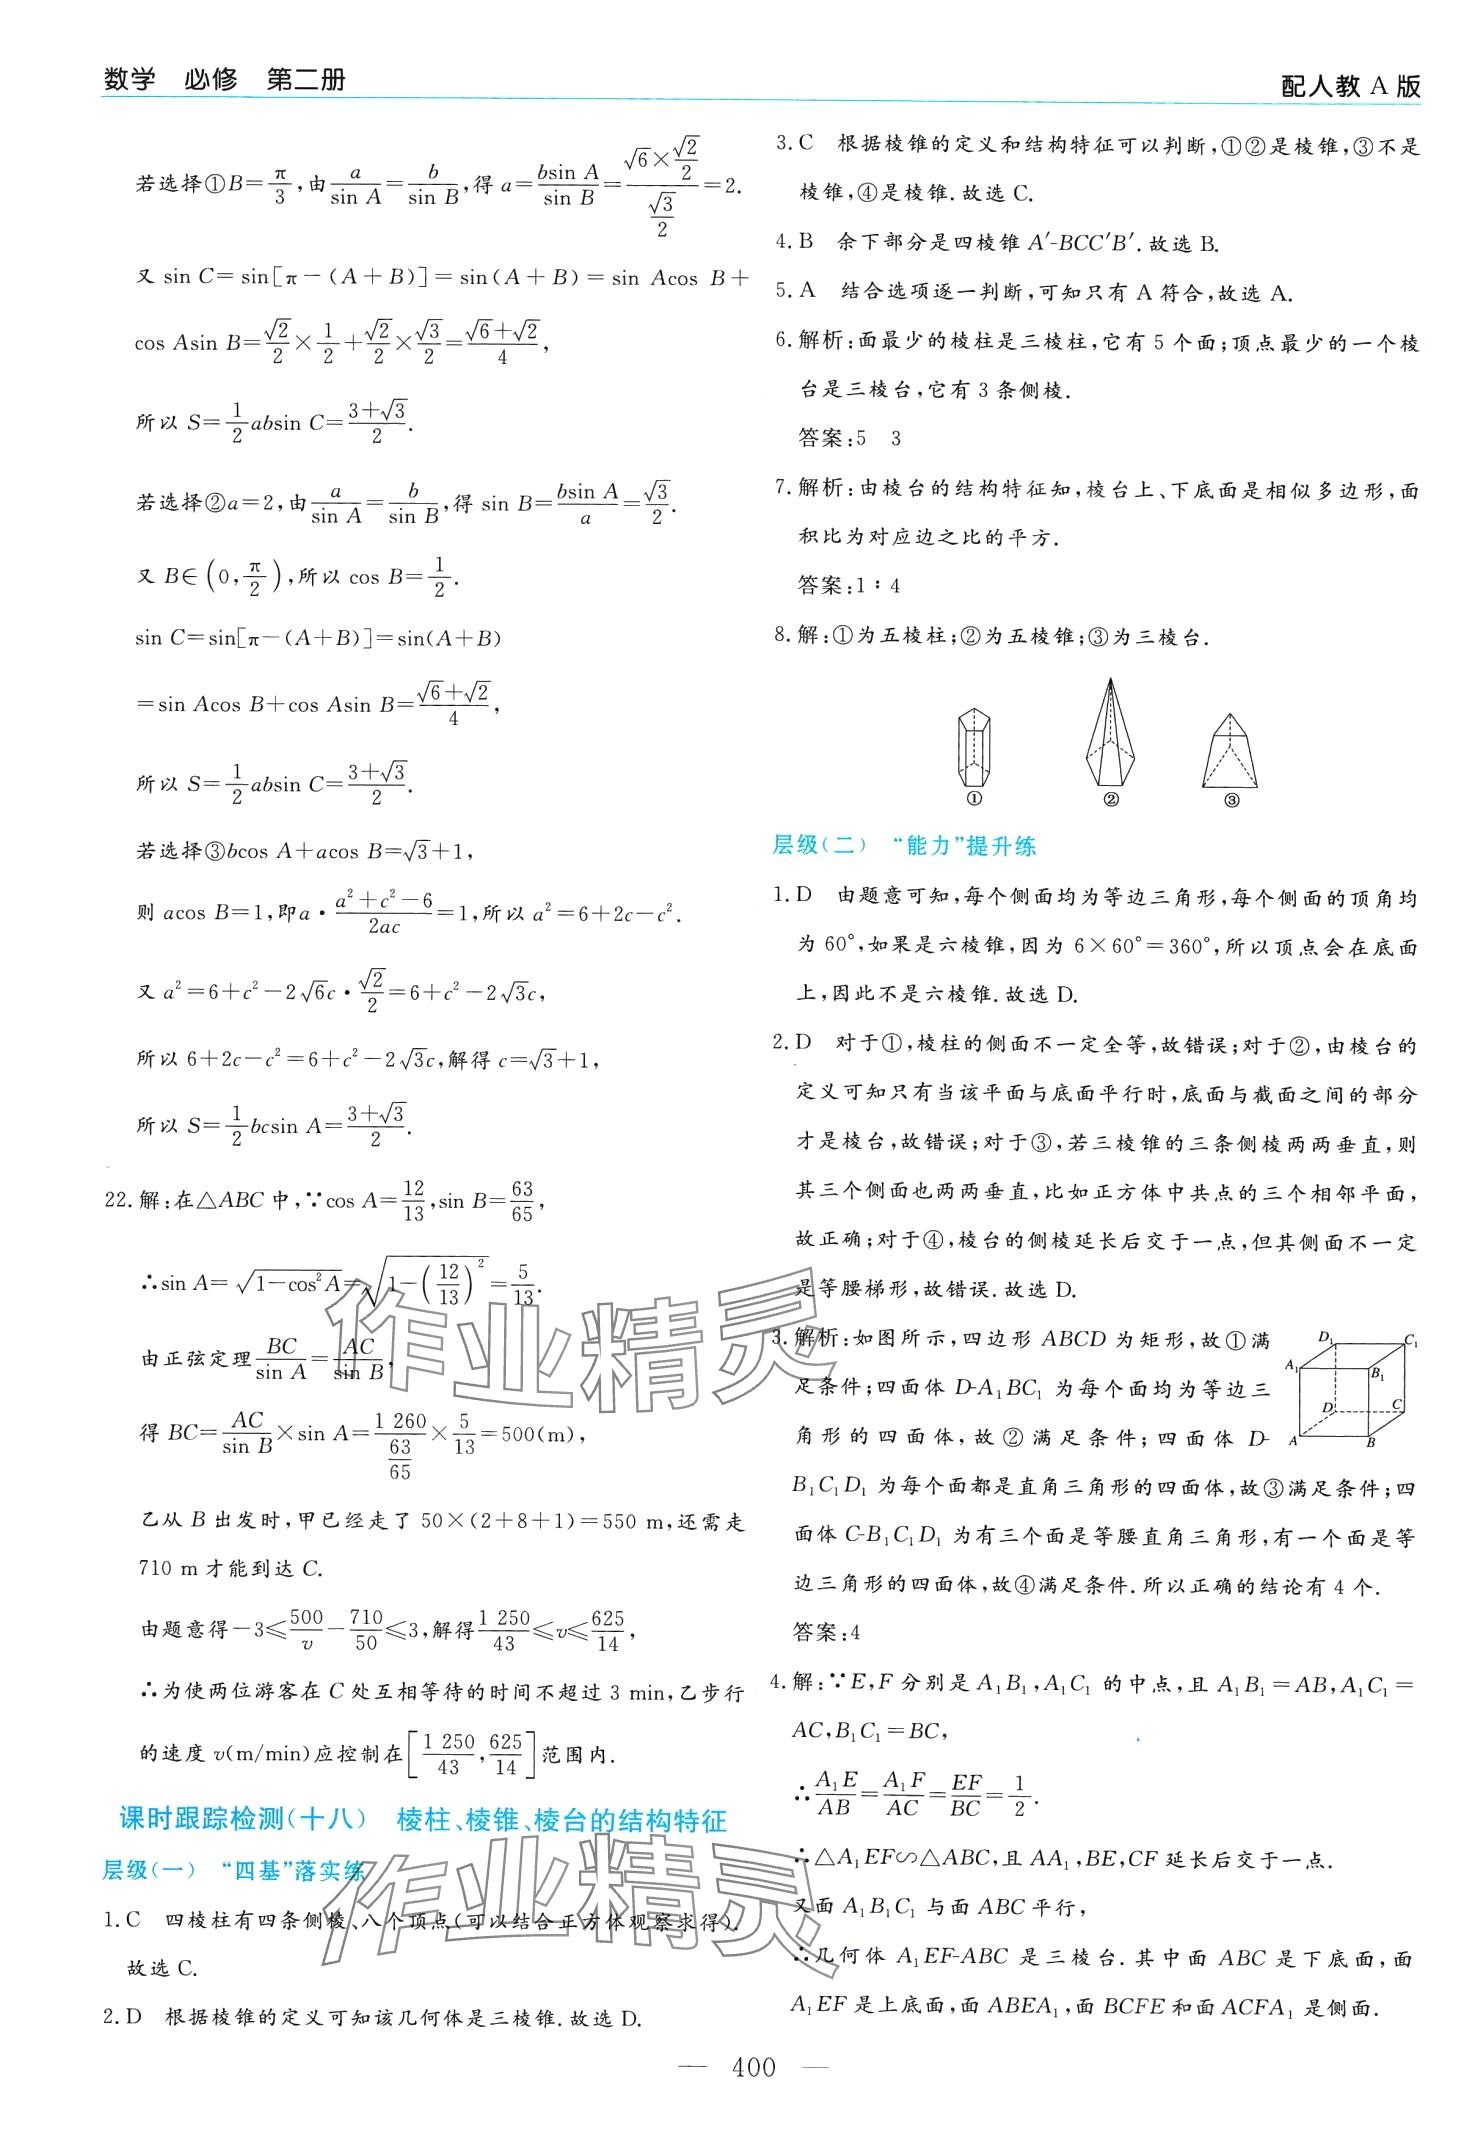 数学　必修　第二册
配人教 A 版
若选择①B=π/3,由a/sin A=b/sin B,得 a=bsin A/sin B=(√6×√2/2)/(√3/2)=2.
又 sin C=sin[π-(A+B)]=sin(A+B)=sin Acos B+
cos Asin B=√2/2×1/2+√2/2×√3/2=(√6+√2)/4,
所以 S=1/2absin C=(3+√3)/2.
若选择②a=2,由a/sin A=b/sin B,得 sin B=bsin A/a=√3/2.
又 B∈(0,π/2),所以 cos B=1/2.
sin C=sin[π-(A+B)]=sin(A+B)
=sin Acos B+cos Asin B=(√6+√2)/4,
所以 S=1/2absin C=(3+√3)/2.
若选择③bcos A+acos B=√3+1,
则 acos B=1,即a·(a²+c²-6)/2ac=1,所以 a²=6+2c-c².
又 a²=6+c²-2√6c·√2/2=6+c²-2√3c,
所以 6+2c-c²=6+c²-2√3c,解得 c=√3+1,
所以 S=1/2bcsin A=(3+√3)/2.
22.解:在△ABC 中,∵cos A=12/13,sin B=63/65,
∴sin A=√(1-cos²A)=√(1-(12/13)²)=5/13.
由正弦定理BC/sin A=AC/sin B,
得 BC=AC/sin B×sin A=1 260/(63/65)×5/13=500(m),
乙从 B 出发时,甲已经走了 50×(2+8+1)=550 m,还需走
710 m才能到达 C.
由题意得-3≤500/v-710/50≤3,解得1 250/43≤v≤625/14,
∴为使两位游客在 C 处互相等待的时间不超过 3 min,乙步行
的速度 v(m/min)应控制在[1 250/43,625/14]范围内.
课时跟踪检测(十八)　棱柱、棱锥、棱台的结构特征
层级(一)　“四基”落实练
1.C　四棱柱有四条侧棱、八个顶点(可以结合正方体观察求得).
故选 C.
2.D　根据棱锥的定义可知该几何体是三棱锥.故选 D.
3.C　根据棱锥的定义和结构特征可以判断,①②是棱锥,③不是
棱锥,④是棱锥.故选 C.
4.B　余下部分是四棱锥 A′-BCC′B′.故选 B.
5.A　结合选项逐一判断,可知只有 A 符合,故选 A.
6.解析:面最少的棱柱是三棱柱,它有 5 个面;顶点最少的一个棱
台是三棱台,它有 3 条侧棱.
答案:5　3
7.解析:由棱台的结构特征知,棱台上、下底面是相似多边形,面
积比为对应边之比的平方.
答案:1∶4
8.解:①为五棱柱;②为五棱锥;③为三棱台.
①　②　③
层级(二)　“能力”提升练
1.D　由题意可知,每个侧面均为等边三角形,每个侧面的顶角均
为 60°,如果是六棱锥,因为 6×60°=360°,所以顶点会在底面
上,因此不是六棱锥.故选 D.
2.D　对于①,棱柱的侧面不一定全等,故错误;对于②,由棱台的
定义可知只有当该平面与底面平行时,底面与截面之间的部分
才是棱台,故错误;对于③,若三棱锥的三条侧棱两两垂直,则
其三个侧面也两两垂直,比如正方体中共点的三个相邻平面,
故正确;对于④,棱台的侧棱延长后交于一点,但其侧面不一定
是等腰梯形,故错误.故选 D.
3.解析:如图所示,四边形 ABCD 为矩形,故①满
足条件;四面体 D-A₁BC₁ 为每个面均为等边三
角形的四面体,故②满足条件;四面体 D-
B₁C₁D₁ 为每个面都是直角三角形的四面体,故③满足条件;四
面体 C-B₁C₁D₁ 为有三个面是等腰直角三角形,有一个面是等
边三角形的四面体,故④满足条件.所以正确的结论有 4 个.
D₁ C₁ A₁ B₁ D C A B
答案:4
4.解:∵E,F 分别是 A₁B₁,A₁C₁ 的中点,且 A₁B₁=AB,A₁C₁=
AC,B₁C₁=BC,
∴A₁E/AB=A₁F/AC=EF/BC=1/2.
∴△A₁EF∽△ABC,且 AA₁,BE,CF 延长后交于一点.
又面 A₁B₁C₁ 与面 ABC 平行,
∴几何体 A₁EF-ABC 是三棱台.其中面 ABC 是下底面,面
A₁EF 是上底面,面 ABEA₁,面 BCFE 和面 ACFA₁ 是侧面.
— 400 —
作业精灵
作业精灵